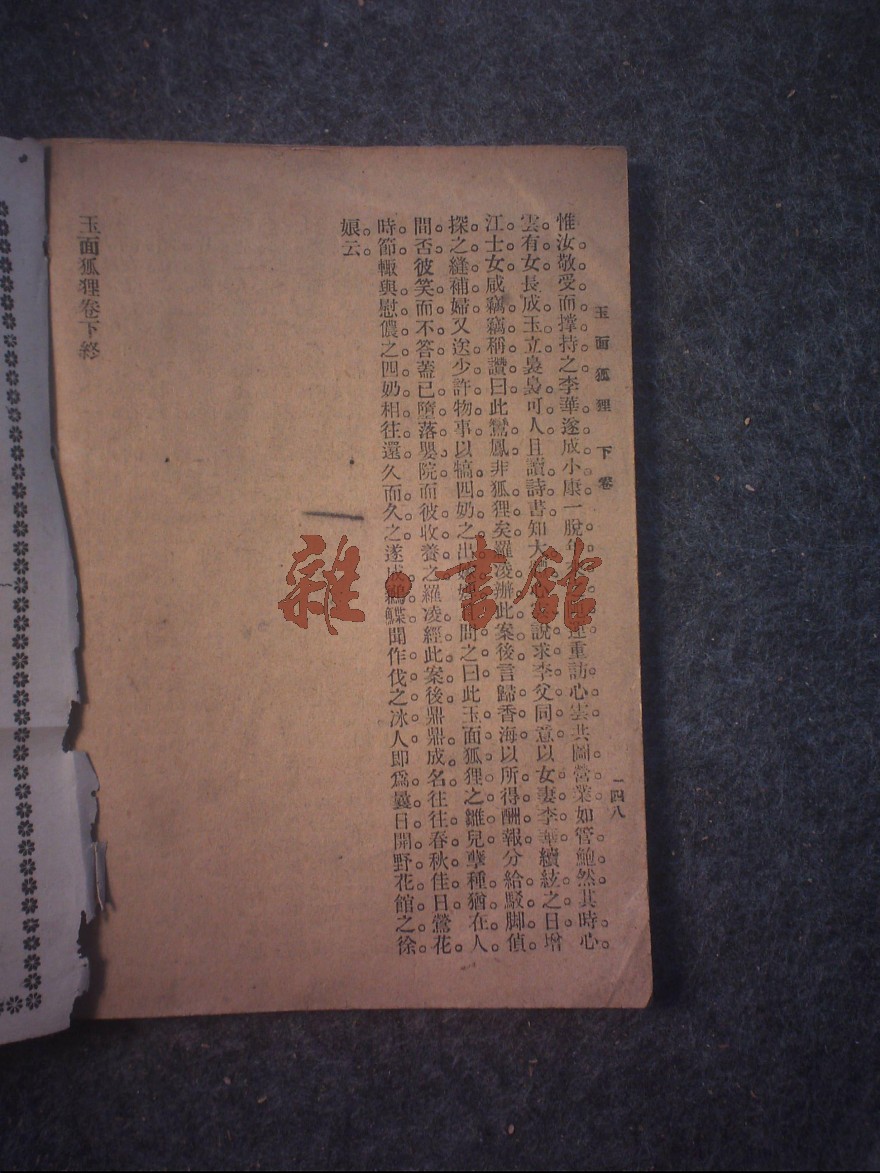 玉面狐狸 下卷
一四八
惟汝敬受而撑持之李華遂成小康一脫年重訪心雲共圖營業如管鮑然其時心
雲有女長成玉立裊裊可人且讀詩書知大說求李父同意以女妻李華續絃之日增
江士女咸竊竊稱讚曰此鸞鳳非狐狸矣羅凌辦此案後言歸香海以所得酬報分給駁脚偵
探之縫補婦又送少許物事以犒四奶之出問之曰此玉面狐狸之雛兒孽種猶在人
間否彼笑而不答蓋已墮落嬰院而彼收養之羅凌經此案後鼎鼎成名往往春秋佳日鶯花
時節輙與慰儂之四奶相往還久而久之遂成鶼鰈聞作伐之冰人即爲曩日開野花館之徐
娘云
玉面狐狸卷下終
雜·書館